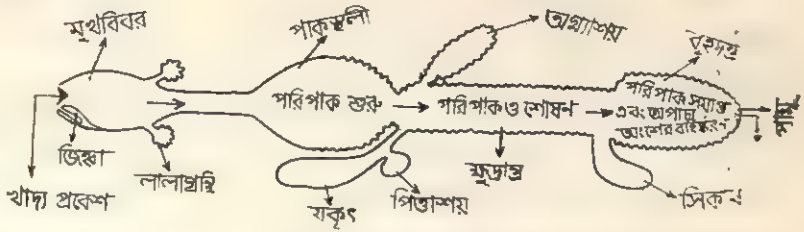 মুখবিবর
পাকস্থলী
অগ্ন্যাশয়
বৃহদন্ত্র
পরিপাক শুরু
পরিপাক ও শোষন
পরিপাক সমাপ্ত
এবং অপাচ্য
অংশের বহিষ্করণ
পায়ু
জিহ্বা
লালাগ্রন্থি
ক্ষুদ্রান্ত্র
খাদ্য প্রবেশ
যকৃৎ
পিত্তাশয়